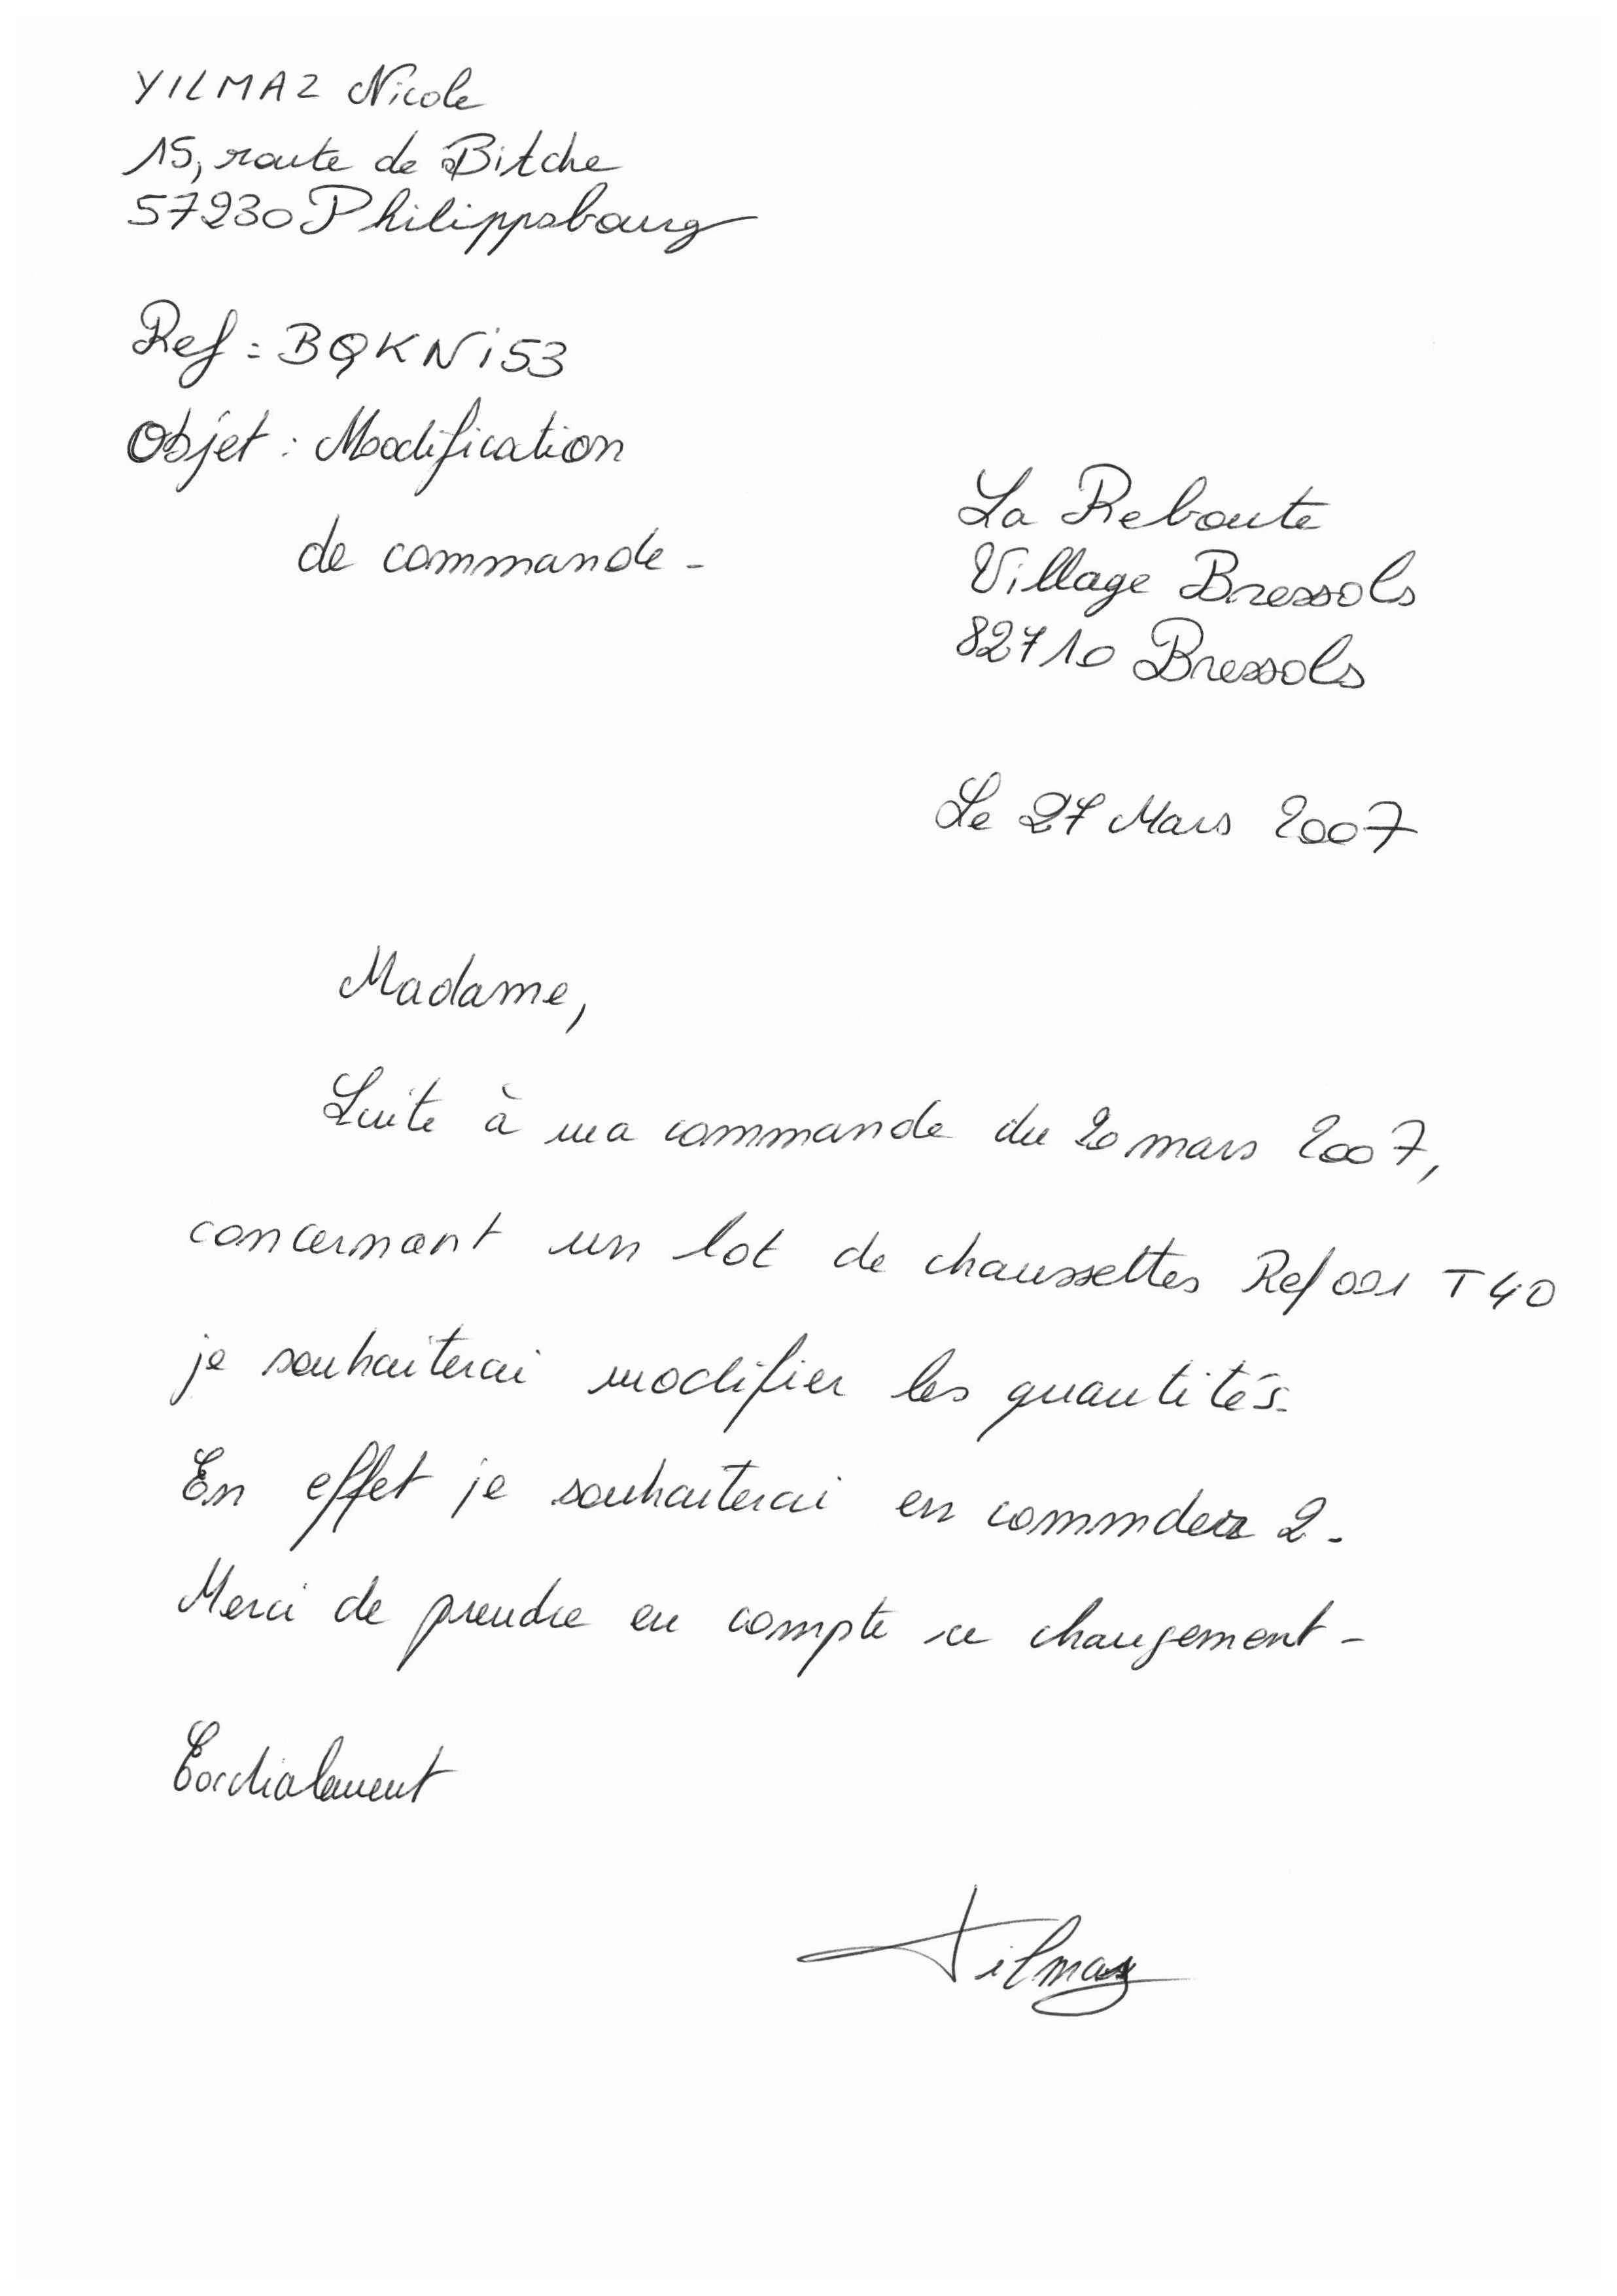 YILMAZ Nicole
15, route de Bitche
57230 Philippsbourg
Ref : BQKNi53
Objet : Modification
de commande -
La Reboute
Village Bressols
82710 Bressols
Le 27 Mars 2007
Madame,
Suite à ma commande du 20 mars 2007,
concernant un lot de chaussettes Ref 001 T40
je souhaiterai modifier les quantités.
En effet je souhaiterai en commder 2.
Merci de prendre en compte ce changement -
Cordialement
Yilmaz